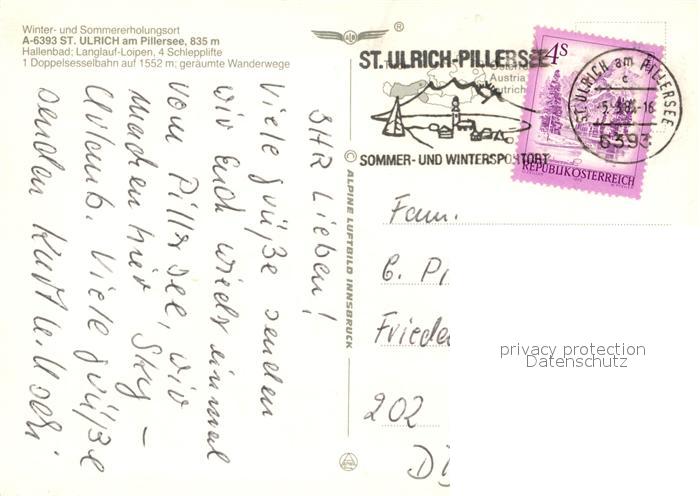 Winter- und Sommererholungsort
A-6393 ST. ULRICH am Pillersee, 835 m
Hallenbad; Langlauf-Loipen, 4 Schlepplifte
1 Doppelsesselbahn auf 1552 m; geräumte Wanderwege
Ihr Lieben!
Viele Grüße senden
wir Euch wieder einmal
vom Pillersee, wir
machen hier Sky-
Urlaub. Viele Grüße
senden Kurt u. Uschi
© ALPINE LUFTBILD INNSBRUCK
®
ST. ULRICH-PILLERSEE
SOMMER- UND WINTERSPORTORT
4S
REPUBLIK ÖSTERREICH
ST. ULRICH am PILLERSEE
c
6393
Austria
Fam.
G. P
Friede
202
privacy protection
Datenschutz